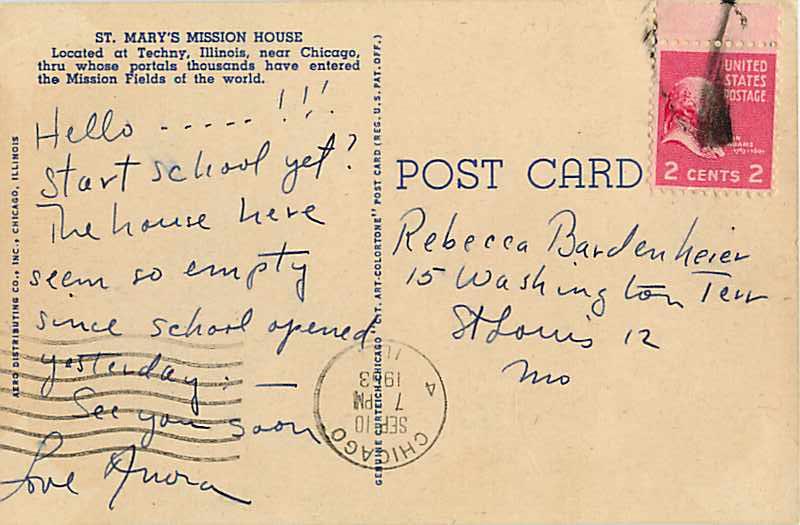 ST. MARY'S MISSION HOUSE
Located at Techny, Illinois, near Chicago,
thru whose portals thousands have entered
the Mission Fields of the world.
Hello ----- !!!
Start school yet?
The house here
seem so empty
since school opened
yesterday. —
See you soon
Love
AERO DISTRIBUTING CO., INC., CHICAGO, ILLINOIS
GENUINE CURTEICH-CHICAGO "C.T. ART-COLORTONE" POST CARD (REG. U.S. PAT. OFF.)
POST CARD
UNITED
STATES
POSTAGE
ADAMS
2 CENTS 2
Rebecca Bardenheier
15 Washington Terr
St Louis 12
Mo
CHICAGO
SEP 10
7 PM
4